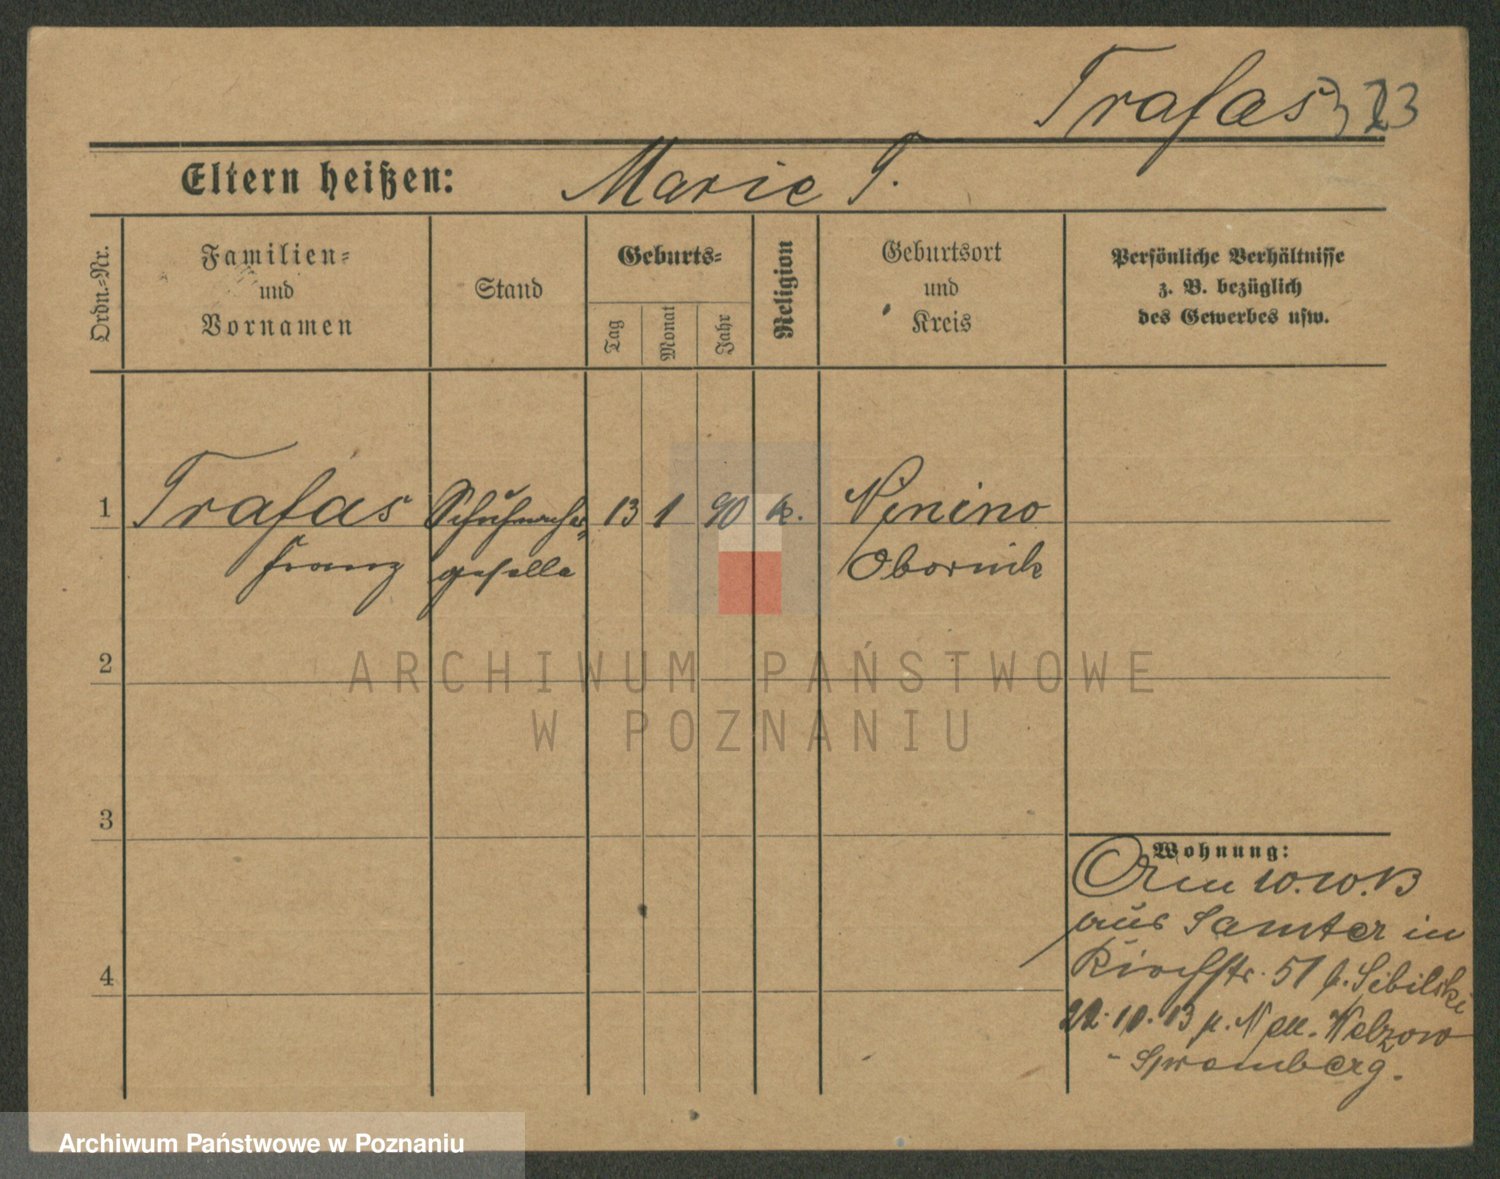 Trafas 323
Eltern heißen: Marie T.
Ordn.-Nr.
Familien-
und
Vornamen
Stand
Geburts-
Tag
Monat
Jahr
Religion
Geburtsort
und
Kreis
Persönliche Verhältnisse
z. B. bezüglich
des Gewerbes usw.
1 Trafas Schuhmacher- 13 1 90 k. Ninino
Franz geselle Obornik
2
3
4
Wohnung:
10.10.13
aus Samter in
Kirchstr. 51 b. Sibilski
22.10.13 n. Neu-Welzow
- Spremberg.
ARCHIWUM PAŃSTWOWE
W POZNANIU
Archiwum Państwowe w Poznaniu